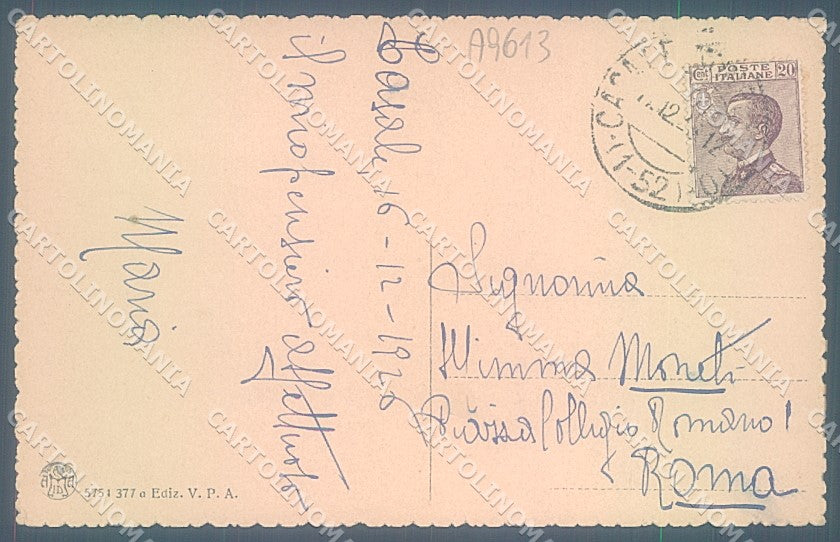 A9613
POSTE
ITALIANE
cent 20
(1-52)
Casale 16-12-1926
il mio pensiero affettuoso
Maria
Signorina
Mimma Moneti
Piazza Collegio Romano 1
Roma
5754 377 a Ediz. V. P. A.
CARTOLINOMANIA